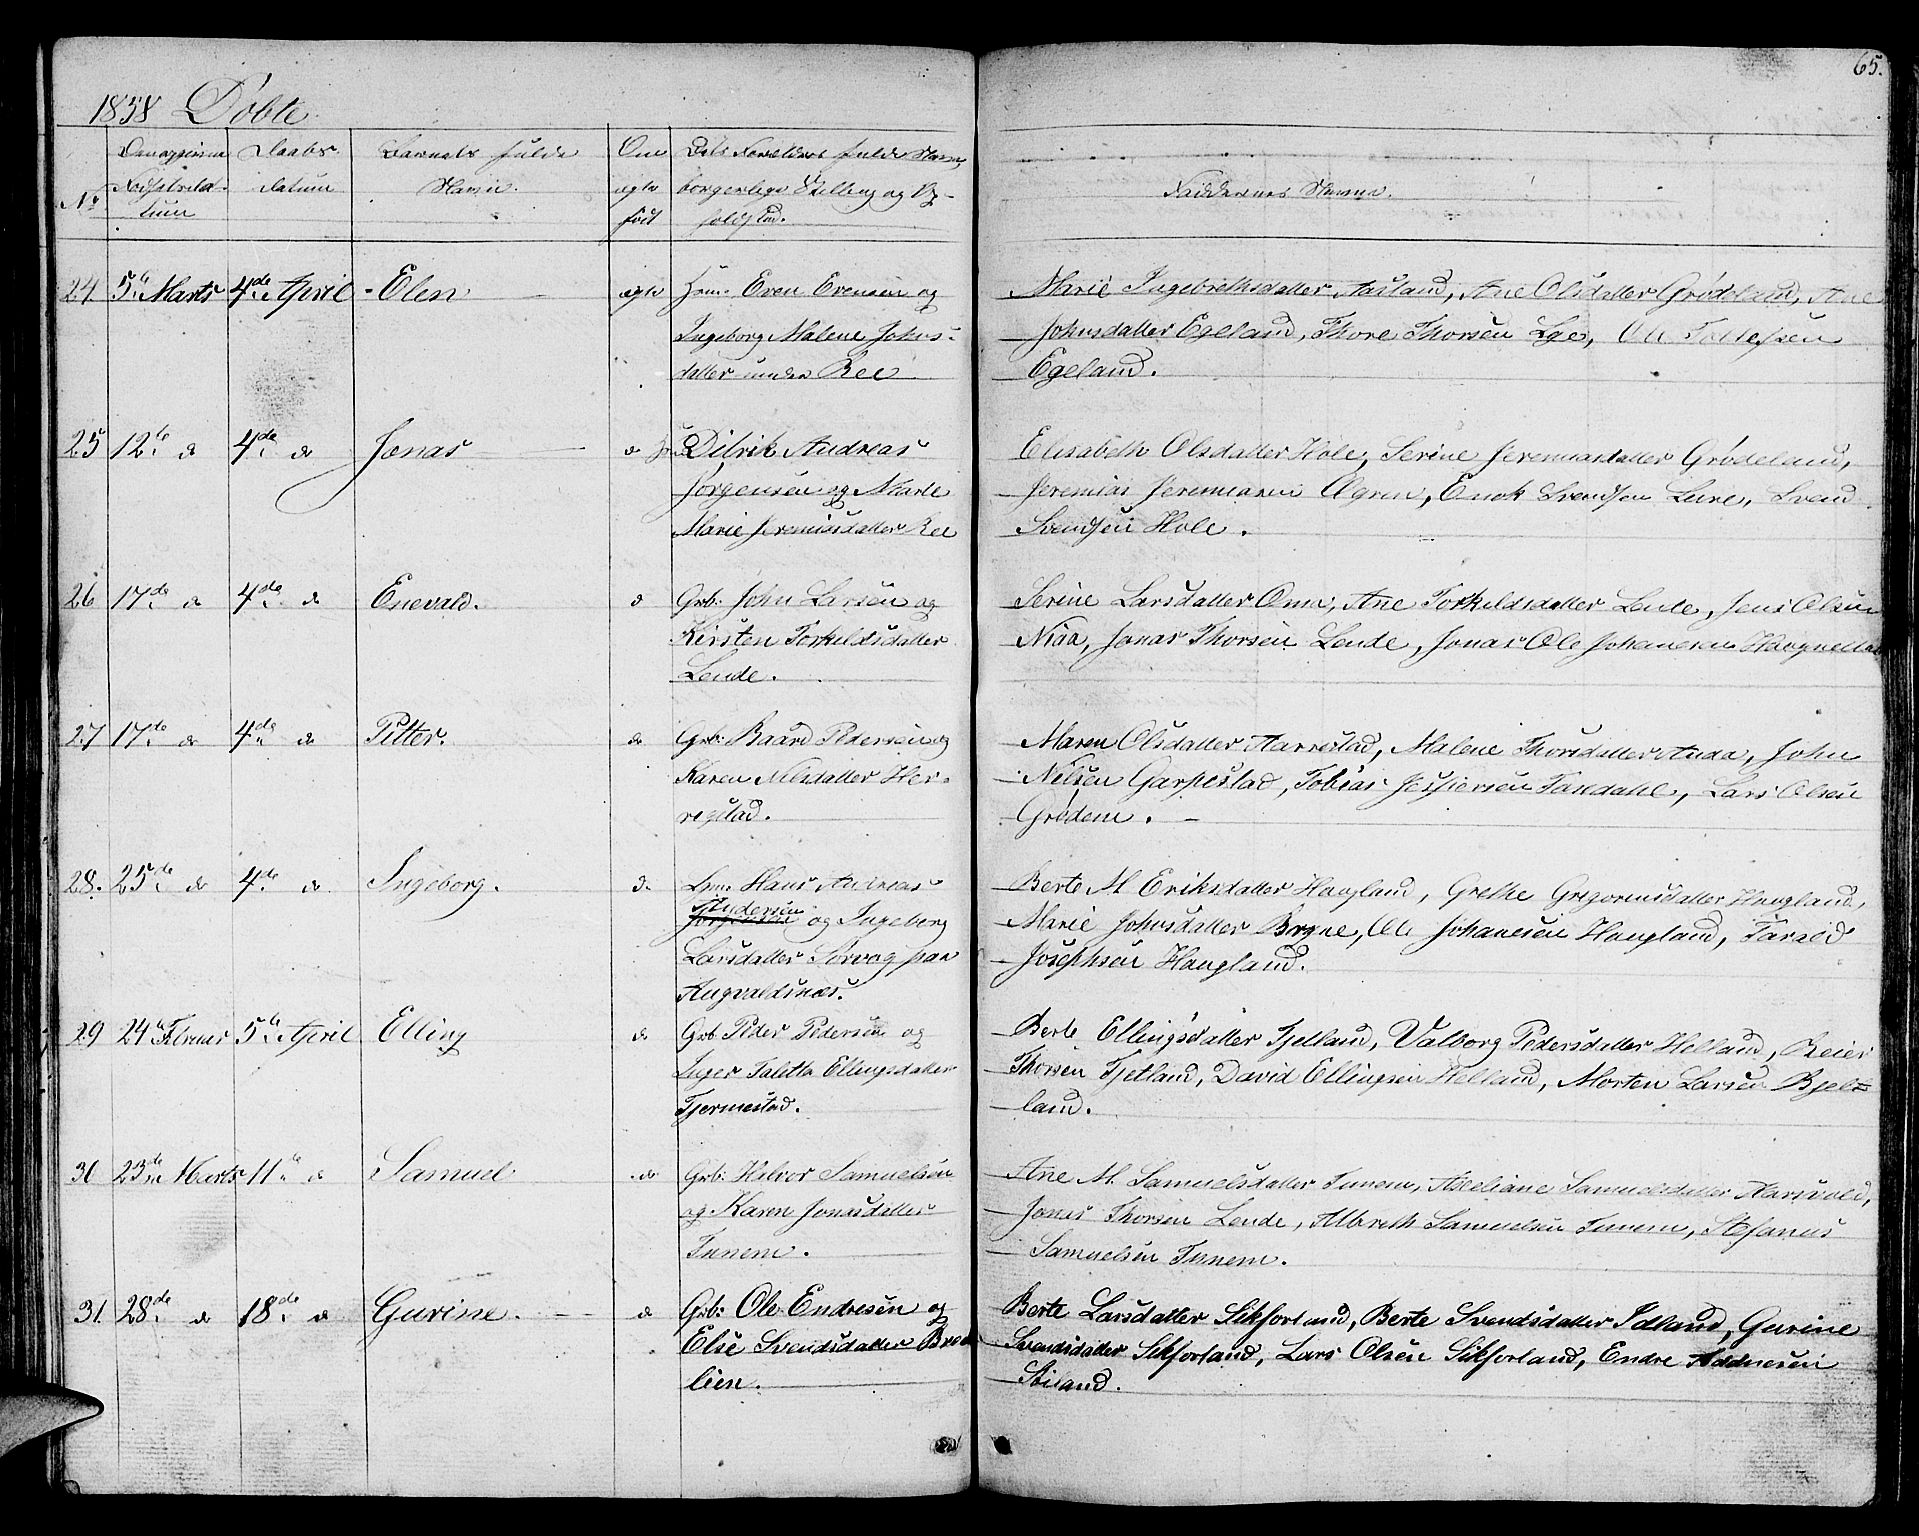 65.
1858 Döbte.
No
Datum
Daabs
datum
Barnets fulde
Navn.
Om
ægte
født
Dets Forældres fulde Navn,
borgerlige Stilling og Op-
holdsted.
Faddernes Navne.
24 5te Marts 4de April - Elen ægte Hm: Even Evensen og
Ingeborg Malene Johns-
datter under Ree
Marie Ingebrethsdatter Aasland, Ane Olsdatter Grødeland, Ane
Johnsdatter Egeland, Thore Thorsen Lge, Ole Tollefsen
Egeland.
25 12te do 4de do Jonas do Didrik Andreas
Jörgensen og Marte
Marie Jeremiasdatter Ree
Elisabeth Olsdatter Hole, Serine Jeremiasdatter Grødeland,
Jeremias Jeremiasen Enok Svendsen Lure, Svend
Svendsen Hole.
26 17de do 4de do Enevald. do Grb: John Larsen og
Kirsten Torkeldsdatter
Lende.
Serine Larsdatter Oma, Ane Torkeldsdatter Lende, Jens Olsen
Niaa, Jonas Thorsen Lende, Jonas Ole Johanesen
27 17de do 4de do Pitter. do Grb: Baard Pedersen og
Karen Nilsdatter Her-
regstad.
Maren Olsdatter Aarrestad, Malene Thorsdatter Anda, John
Nilsen Garpestad, Tobias Jespersen Taxdahl, Lars Olsen
Grødem.
28. 25de do 4de do Ingeborg. do Lm: Hans Andreas
Andersen
Jörgensen og Ingeborg
Larsdatter Sorvag paa
Augvaldsnæs.
Berte M. Eriksdatter Haugland, Grethe Gregoriusdatter Haugland,
Marie Johnsdatter Bryne, Ole Johanesen Haugland, Tarald
Josephsen Haugland.
29 24de Februar 5te April Elling do Grb: Peder Pedersen og
Inger Taletta Ellingsdatter
Tjermestad.
Berte Ellingsdatter Tjetland, Valborg Pedersdatter Helland, Reier
Thorsen Tjetland, David Ellingsen Helland, Morten Larsen Bjelt-
land.
30 23de Marts 11te do Samuel do Grb: Halvor Samuelsen
og Karen Jonasdatter
Tunem.
Ane M. Samuelsdatter Tunem, Axeliane Samuelsdatter Aarsvold,
Jonas Thorsen Lende, Albreth Samuelsen Tunem, Stefanus
Samuelsen Tunem.
31. 28de do 18de do Gurine. do Grb: Ole Endresen og
Else Svendsdatter Brede
lien.
Berte Larsdatter Sikforland, Berte Svendsdatter Idland, Gurine
Svendsdatter Sikforland, Lars Olsen Sikforland, Endre Addnesen
Söiland.